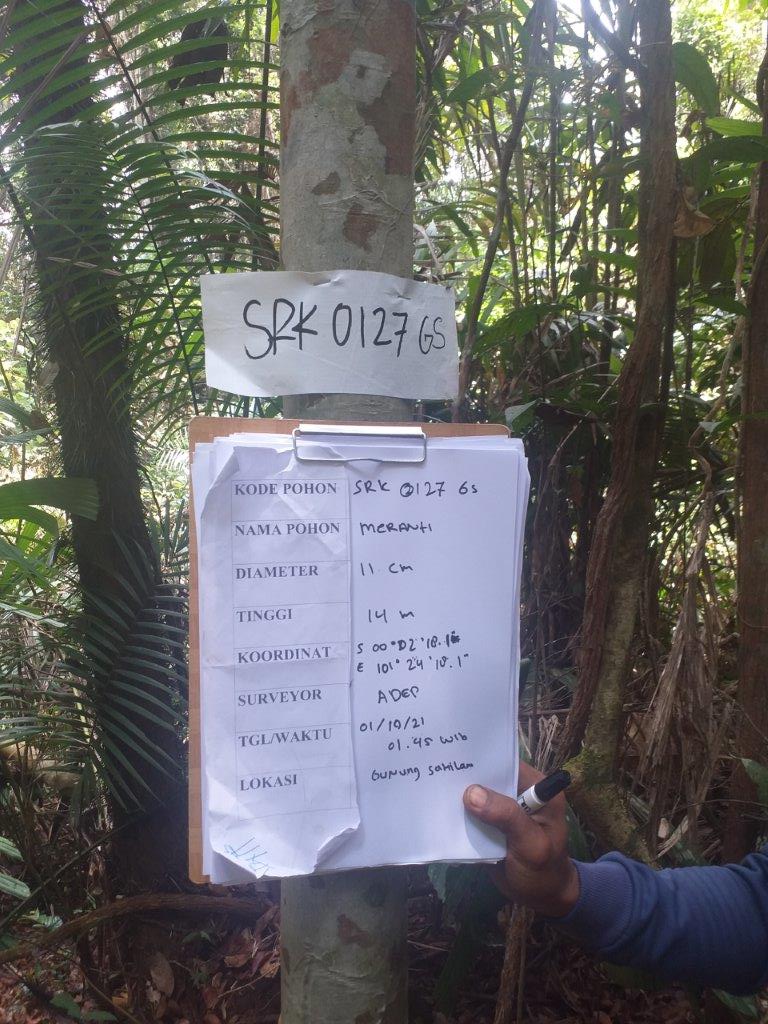 SRK 0127 GS
KODE POHON SRK 0127 GS
NAMA POHON MERANTI
DIAMETER 11 cm
TINGGI 14 m
KOORDINAT S 00° 02' 18.1"
E 101° 24' 18.1"
SURVEYOR ADEP
TGL/WAKTU 01/10/21
01.45 WIB
LOKASI GUNUNG SAHILAN